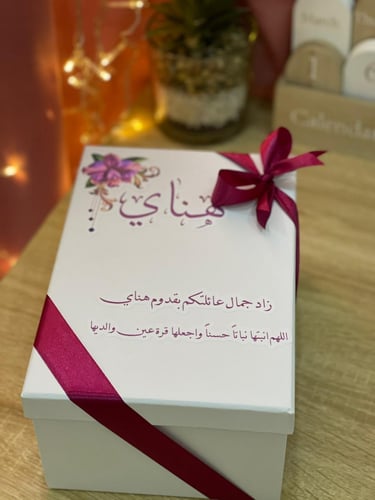 March
1
6
Calendar
هناي
زاد جمال عائلتكم بقدوم هناي
اللهم انبتها نباتاً حسناً واجعلها قرة عين والديها